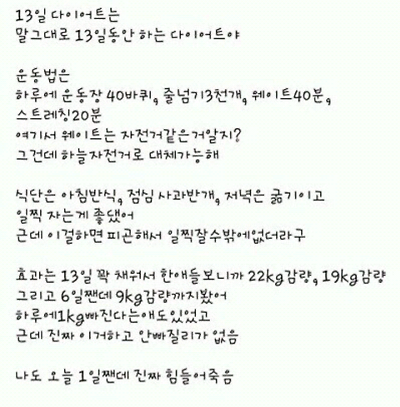 13일 다이어트는
말그대로 13일동안 하는 다이어트야
운동법은
하루에 운동장 40바퀴, 줄넘기3천개, 웨이트40분,
스트레칭20분
여기서 웨이트는 자전거같은거알지?
그런데 하늘자전거로 대체가능해
식단은 아침반식, 점심 사과반개, 저녁은 굶기이고
일찍 자는게 좋댔어
근데 이걸하면 피곤해서 일찍잘수밖에없더라구
효과는 13일 꽉 채워서 한애들보니까 22kg감량, 19kg감량
그리고 6일짼데 9kg감량까지봤어
하루에1kg빠진다는애도있었고
근데 진짜 이거하고 안빠질리가 없음
나도 오늘 1일짼데 진짜 힘들어죽음